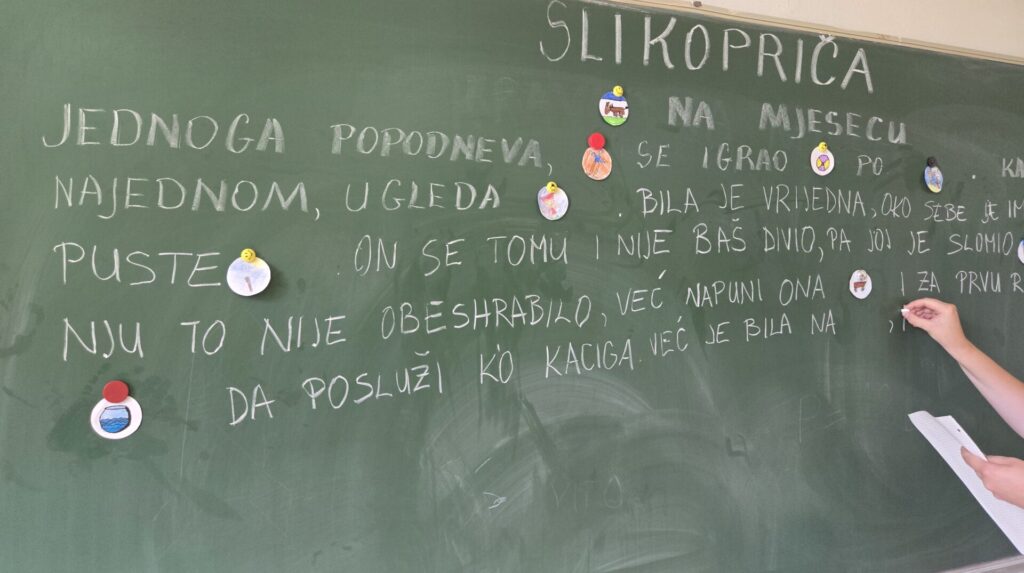 SLIKOPRIČA
NA MJESECU
JEDNOGA POPODNEVA, SE IGRAO PO . KA
NAJEDNOM, UGLEDA . BILA JE VRIJEDNA, OKO SEBE JE IM
PUSTE . ON SE TOMU I NIJE BAŠ DIVIO, PA JOJ JE SLOMIO
NJU TO NIJE OBESHRABILO, VEĆ NAPUNI ONA I ZA PRVU R
DA POSLUŽI K'O KACIGA. VEĆ JE BILA NA ,